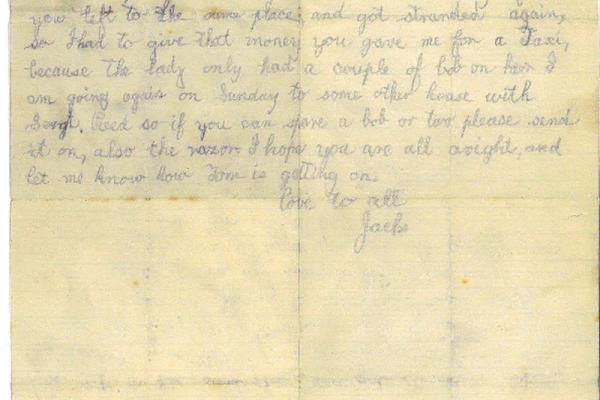 you left to the same place, and got stranded again,
so I had to give that money you gave me for a Taxi,
because the lady only had a couple of bob on her I
am going again on Sunday to some other house with
Sergt. Reed so if you can spare a bob or two please send
it on, also the razor I hope you are all aright, and
let me know how Tom is getting on.
Love to all
Jack